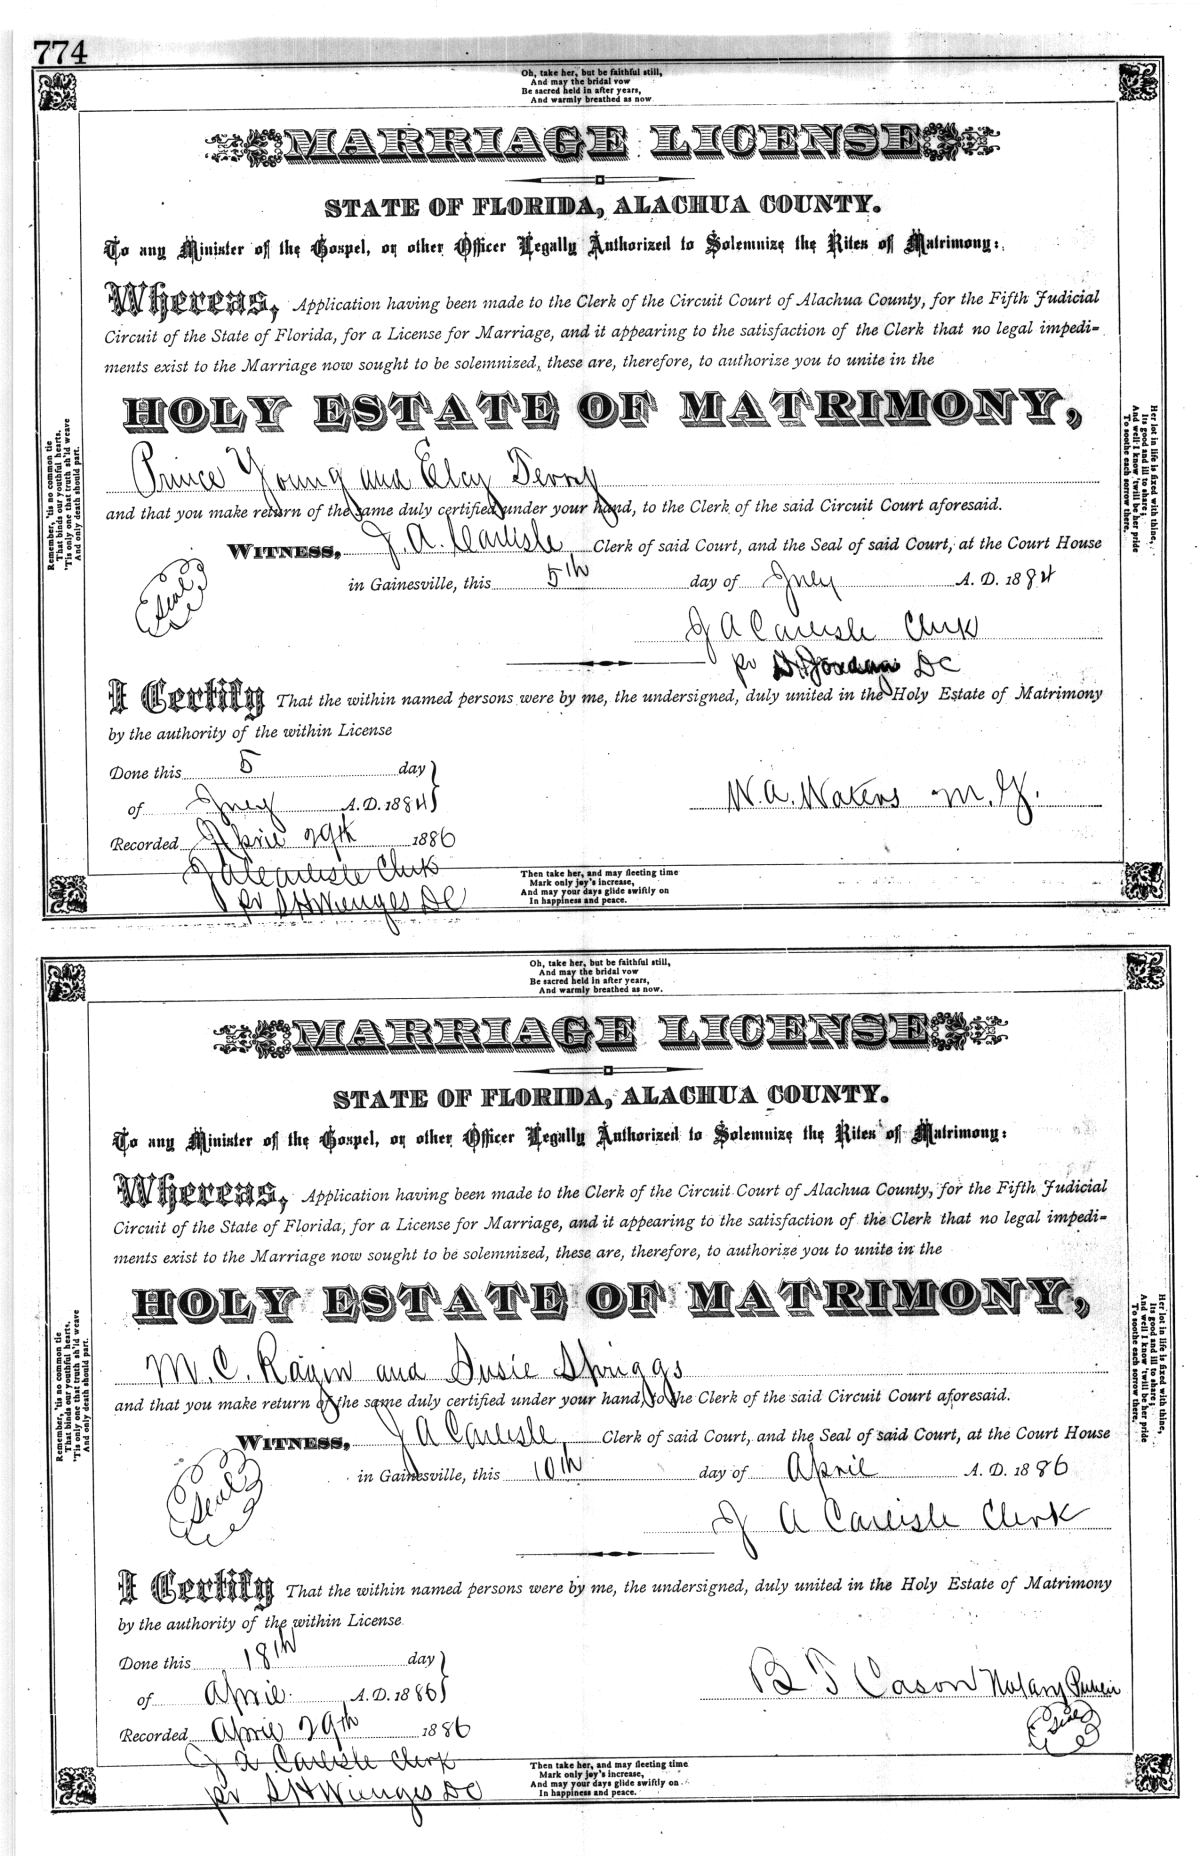 774
Oh, take her, but be faithful still,
And may the bridal vow
Be sacred held in after years,
And warmly breathed as now
MARRIAGE LICENSE
STATE OF FLORIDA, ALACHUA COUNTY.
To any Minister of the Gospel, or other Officer Legally Authorized to Solemnize the Rites of Matrimony:
Whereas, Application having been made to the Clerk of the Circuit Court of Alachua County, for the Fifth Judicial
Circuit of the State of Florida, for a License for Marriage, and it appearing to the satisfaction of the Clerk that no legal impedi-
ments exist to the Marriage now sought to be solemnized, these are, therefore, to authorize you to unite in the
HOLY ESTATE OF MATRIMONY,
Prince Young and Elcy Terry
and that you make return of the same duly certified under your hand, to the Clerk of the said Circuit Court aforesaid.
WITNESS, J. A. Carlisle, Clerk of said Court, and the Seal of said Court, at the Court House
Seal
in Gainesville, this 5th day of July A. D. 1884
J A Carlisle Clerk
pr Jordan DC
I Certify That the within named persons were by me, the undersigned, duly united in the Holy Estate of Matrimony
by the authority of the within License
Done this 5 day
of July A. D. 1884
W. A. Waters M. G.
Recorded April 29th 1886
J A Carlisle Clerk
pr S H Wienges DC
Remember, 'tis no common tie
That binds our youthful hearts,
'Tis only one that truth sh'ld weave
And only death should part.
Her lot in life is fixed with thine,
Its good and ill to share;
And well I know 'twill be her pride
To soothe each sorrow there.
Then take her, and may fleeting time
Mark only joy's increase,
And may your days glide swiftly on
In happiness and peace.
Oh, take her, but be faithful still,
And may the bridal vow
Be sacred held in after years,
And warmly breathed as now.
MARRIAGE LICENSE
STATE OF FLORIDA, ALACHUA COUNTY.
To any Minister of the Gospel, or other Officer Legally Authorized to Solemnize the Rites of Matrimony:
Whereas, Application having been made to the Clerk of the Circuit Court of Alachua County, for the Fifth Judicial
Circuit of the State of Florida, for a License for Marriage, and it appearing to the satisfaction of the Clerk that no legal impedi-
ments exist to the Marriage now sought to be solemnized, these are, therefore, to authorize you to unite in the
HOLY ESTATE OF MATRIMONY,
M. C. Ragin and Susie Spriggs
and that you make return of the same duly certified under your hand, to the Clerk of the said Circuit Court aforesaid.
WITNESS, J A Carlisle, Clerk of said Court, and the Seal of said Court, at the Court House
Seal
in Gainesville, this 10th day of April A. D. 1886
J A Carlisle Clerk
I Certify That the within named persons were by me, the undersigned, duly united in the Holy Estate of Matrimony
by the authority of the within License
Done this 18th day
of April A. D. 1886
B T Cason Notary Public
Seal
Recorded April 29th 1886
J A Carlisle Clerk
pr S H Wienges DC
Remember, 'tis no common tie
That binds our youthful hearts,
'Tis only one that truth sh'ld weave
And only death should part.
Her lot in life is fixed with thine,
Its good and ill to share;
And well I know 'twill be her pride
To soothe each sorrow there.
Then take her, and may fleeting time
Mark only joy's increase,
And may your days glide swiftly on
In happiness and peace.